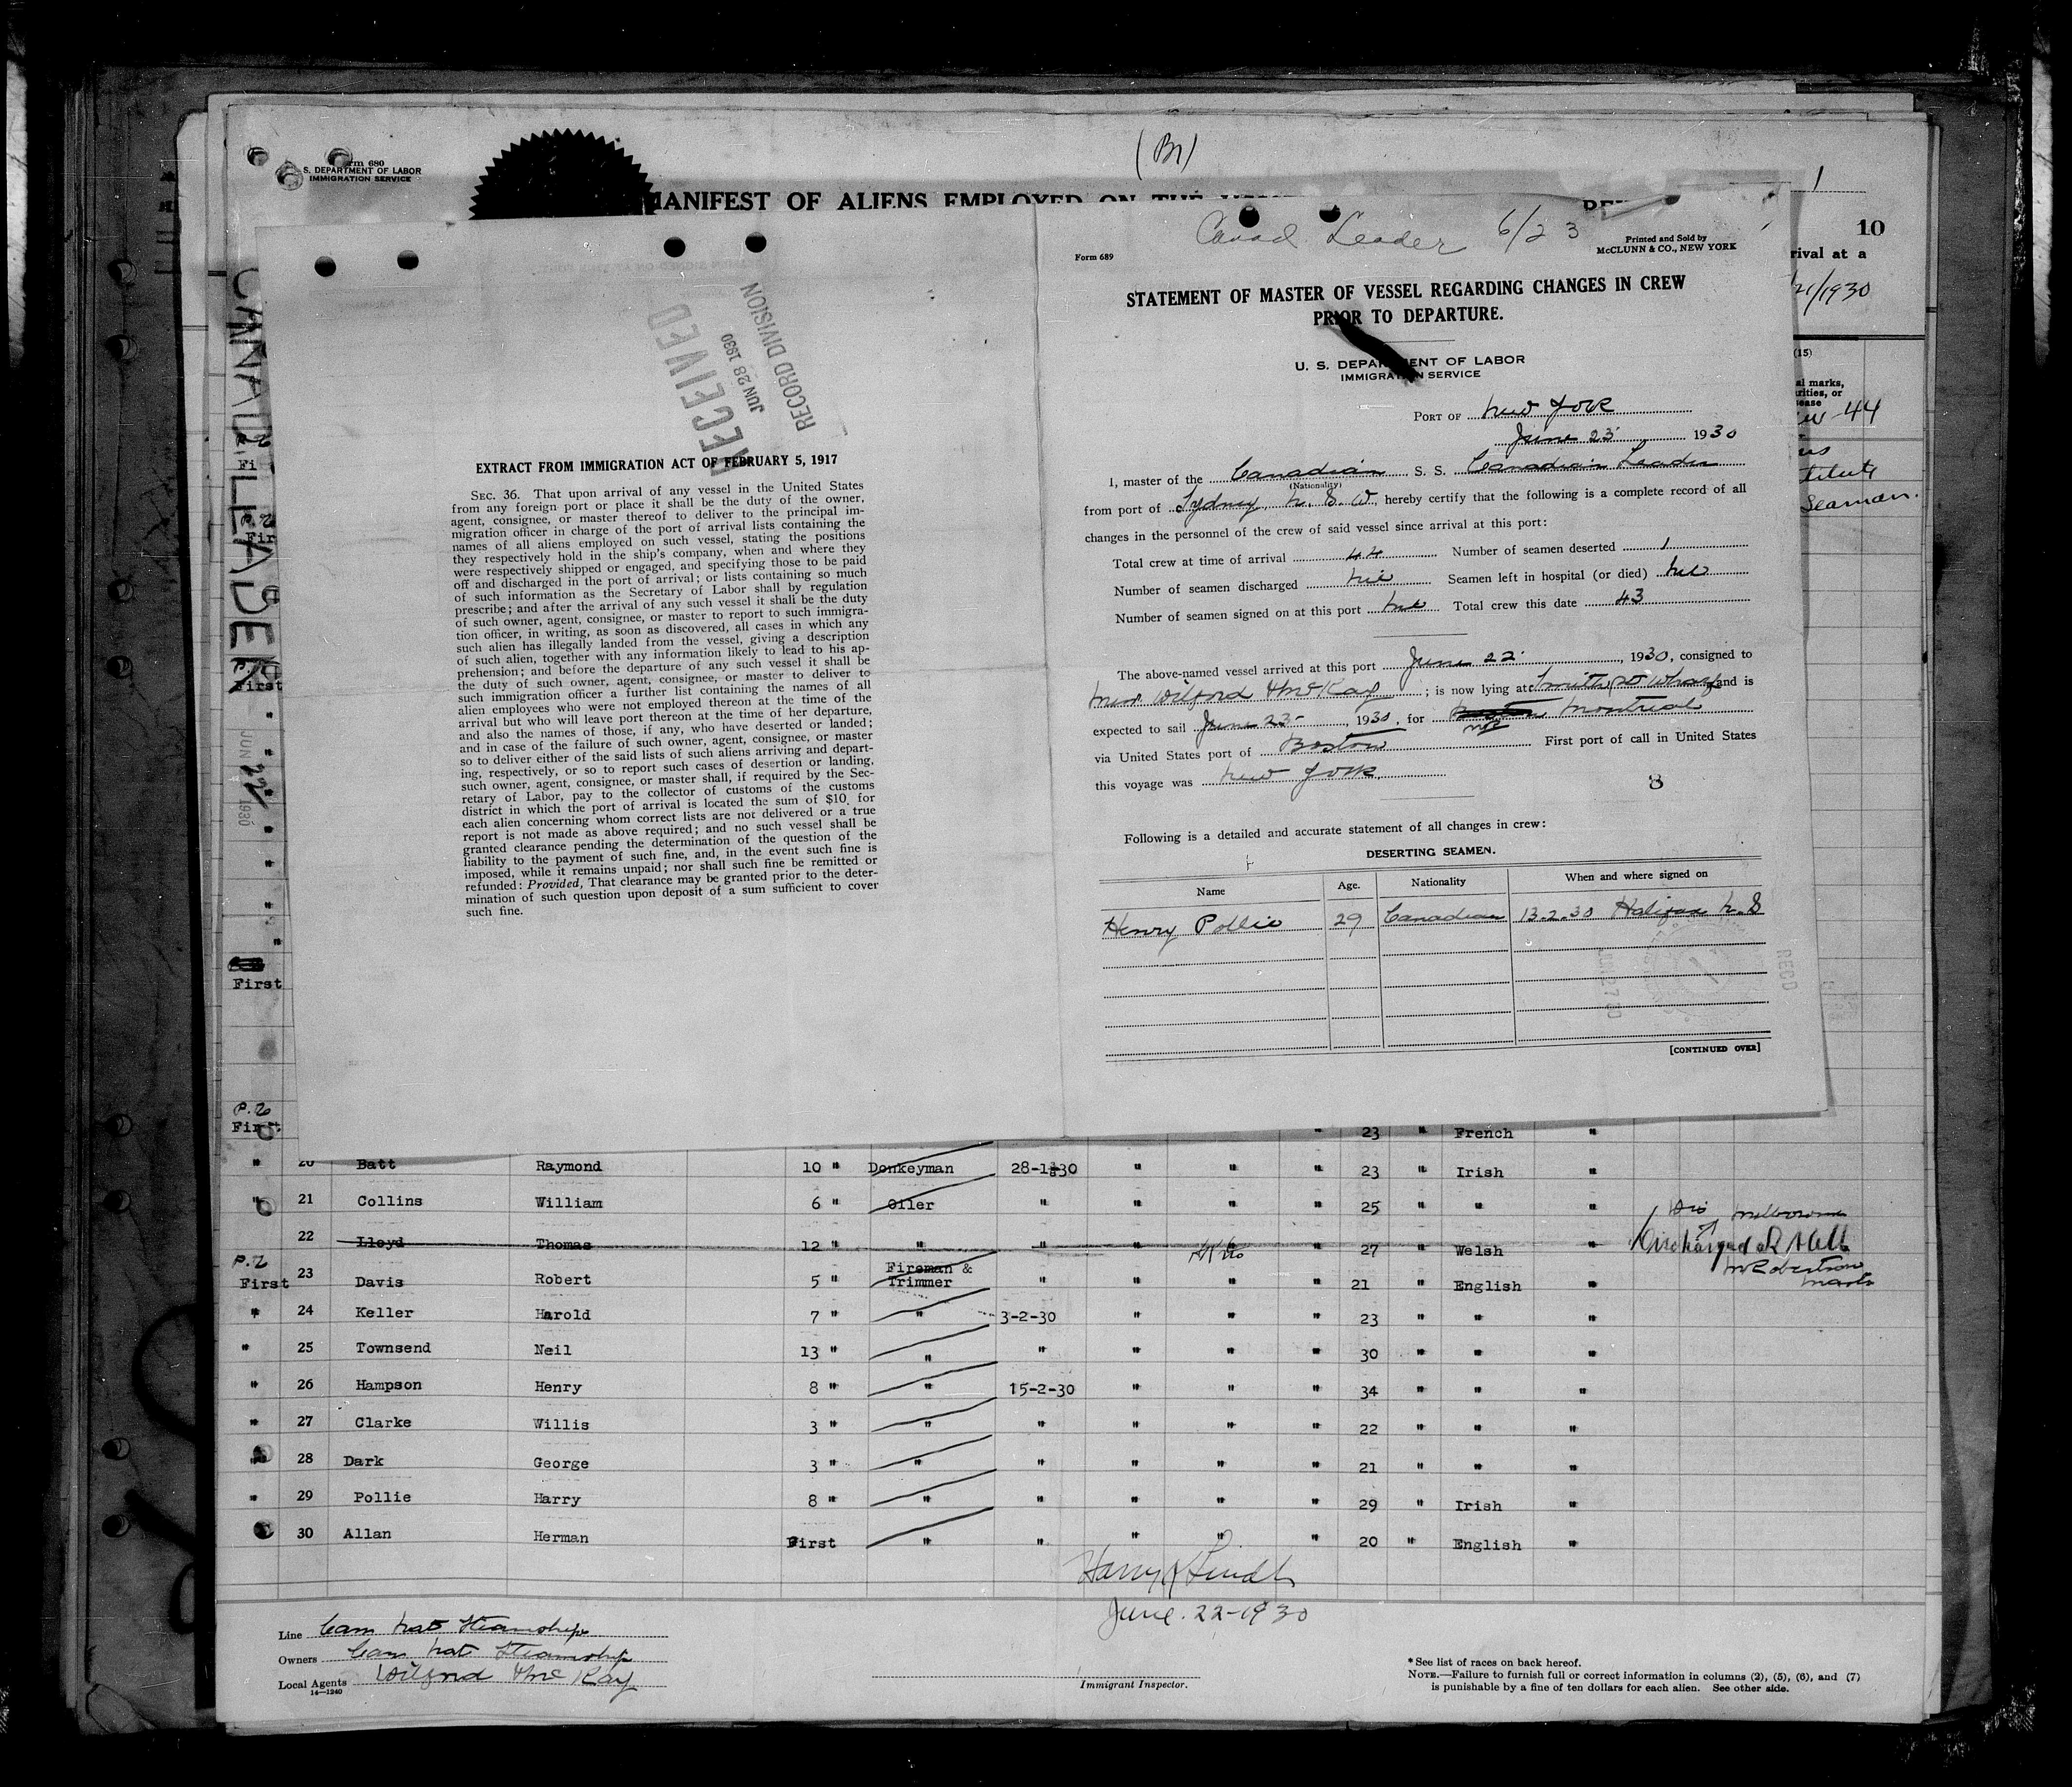 (Br)
Form 680
S. DEPARTMENT OF LABOR
IMMIGRATION SERVICE
MANIFEST OF ALIENS EMPLOYED ON THE
1
10
rival at a
21/1930
(15)
al marks,
rities, or
sease
44
titute
Seaman.
CANAD. LEADER
JUN 22 1930
RECEIVED
JUN 28 1930
RECORD DIVISION
EXTRACT FROM IMMIGRATION ACT OF FEBRUARY 5, 1917
SEC. 36. That upon arrival of any vessel in the United States
from any foreign port or place it shall be the duty of the owner,
agent, consignee, or master thereof to deliver to the principal im-
migration officer in charge of the port of arrival lists containing the
names of all aliens employed on such vessel, stating the positions
they respectively hold in the ship's company, when and where they
were respectively shipped or engaged, and specifying those to be paid
off and discharged in the port of arrival; or lists containing so much
of such information as the Secretary of Labor shall by regulation
prescribe; and after the arrival of any such vessel it shall be the duty
of such owner, agent, consignee, or master to report to such immigra-
tion officer, in writing, as soon as discovered, all cases in which any
such alien has illegally landed from the vessel, giving a description
of such alien, together with any information likely to lead to his ap-
prehension; and before the departure of any such vessel it shall be
the duty of such owner, agent, consignee, or master to deliver to
such immigration officer a further list containing the names of all
alien employees who were not employed thereon at the time of the
arrival but who will leave port thereon at the time of her departure,
and also the names of those, if any, who have deserted or landed;
and in case of the failure of such owner, agent, consignee, or master
so to deliver either of the said lists of such aliens arriving and depart-
ing, respectively, or so to report such cases of desertion or landing,
such owner, agent, consignee, or master shall, if required by the Sec-
retary of Labor, pay to the collector of customs of the customs
district in which the port of arrival is located the sum of $10 for
each alien concerning whom correct lists are not delivered or a true
report is not made as above required; and no such vessel shall be
granted clearance pending the determination of the question of the
liability to the payment of such fine, and, in the event such fine is
imposed, while it remains unpaid; nor shall such fine be remitted or
refunded: Provided, That clearance may be granted prior to the deter-
mination of such question upon deposit of a sum sufficient to cover
such fine.
Canad Leader 6/23
Form 689
Printed and Sold by
McCLUNN & CO., NEW YORK
STATEMENT OF MASTER OF VESSEL REGARDING CHANGES IN CREW
PRIOR TO DEPARTURE.
U. S. DEPARTMENT OF LABOR
IMMIGRATION SERVICE
PORT OF New York
June 23 1930
I, master of the Canadian S. S. Canadian Leader
(Nationality)
from port of Sydney, N. S. W, hereby certify that the following is a complete record of all
changes in the personnel of the crew of said vessel since arrival at this port:
Total crew at time of arrival 44 Number of seamen deserted 1
Number of seamen discharged nil Seamen left in hospital (or died) nil
Number of seamen signed on at this port nil Total crew this date 43
The above-named vessel arrived at this port June 22, 1930, consigned to
Mess Wilford & McKay; is now lying at Smith St Wharf and is
expected to sail June 23, 1930, for Boston Montreal
via United States port of Boston First port of call in United States
this voyage was New York
8
Following is a detailed and accurate statement of all changes in crew:
DESERTING SEAMEN.
Name Age. Nationality When and where signed on
Henry Pollie 29 Canadian 13-2-30 Halifax N.S
REC'D
JUN 27 30
[CONTINUED OVER]
First
First
P.2
First
" 23 " French "
" 20 Batt Raymond 10 " Donkeyman 28-1-30 " " " 23 " Irish "
" 21 Collins William 6 " Oiler " " " " 25 " " "
22 Lloyd Thomas 12 " " " " " 27 " Welsh " Discharged at Melb
Melbourne
McRobertson
Master
P.2
First 23 Davis Robert 5 " Fireman & Trimmer " " " " 21 " English "
" 24 Keller Harold 7 " " 3-2-30 " " " 23 " " "
" 25 Townsend Neil 13 " " " " " " 30 " " "
" 26 Hampson Henry 8 " " 15-2-30 " " " 34 " " "
" 27 Clarke Willis 3 " " " " " " 22 " " "
" 28 Dark George 3 " " " " " " 21 " " "
" 29 Pollie Harry 8 " " " " " " 29 " Irish "
30 Allan Herman First " " " " " 20 " English "
June 22-1930
Line Can Nat Steamships
Owners Can Nat Steamship
Local Agents Wilford & McKay
14—1240
Immigrant Inspector.
* See list of races on back hereof.
NOTE.—Failure to furnish full or correct information in columns (2), (5), (6), and (7)
is punishable by a fine of ten dollars for each alien. See other side.